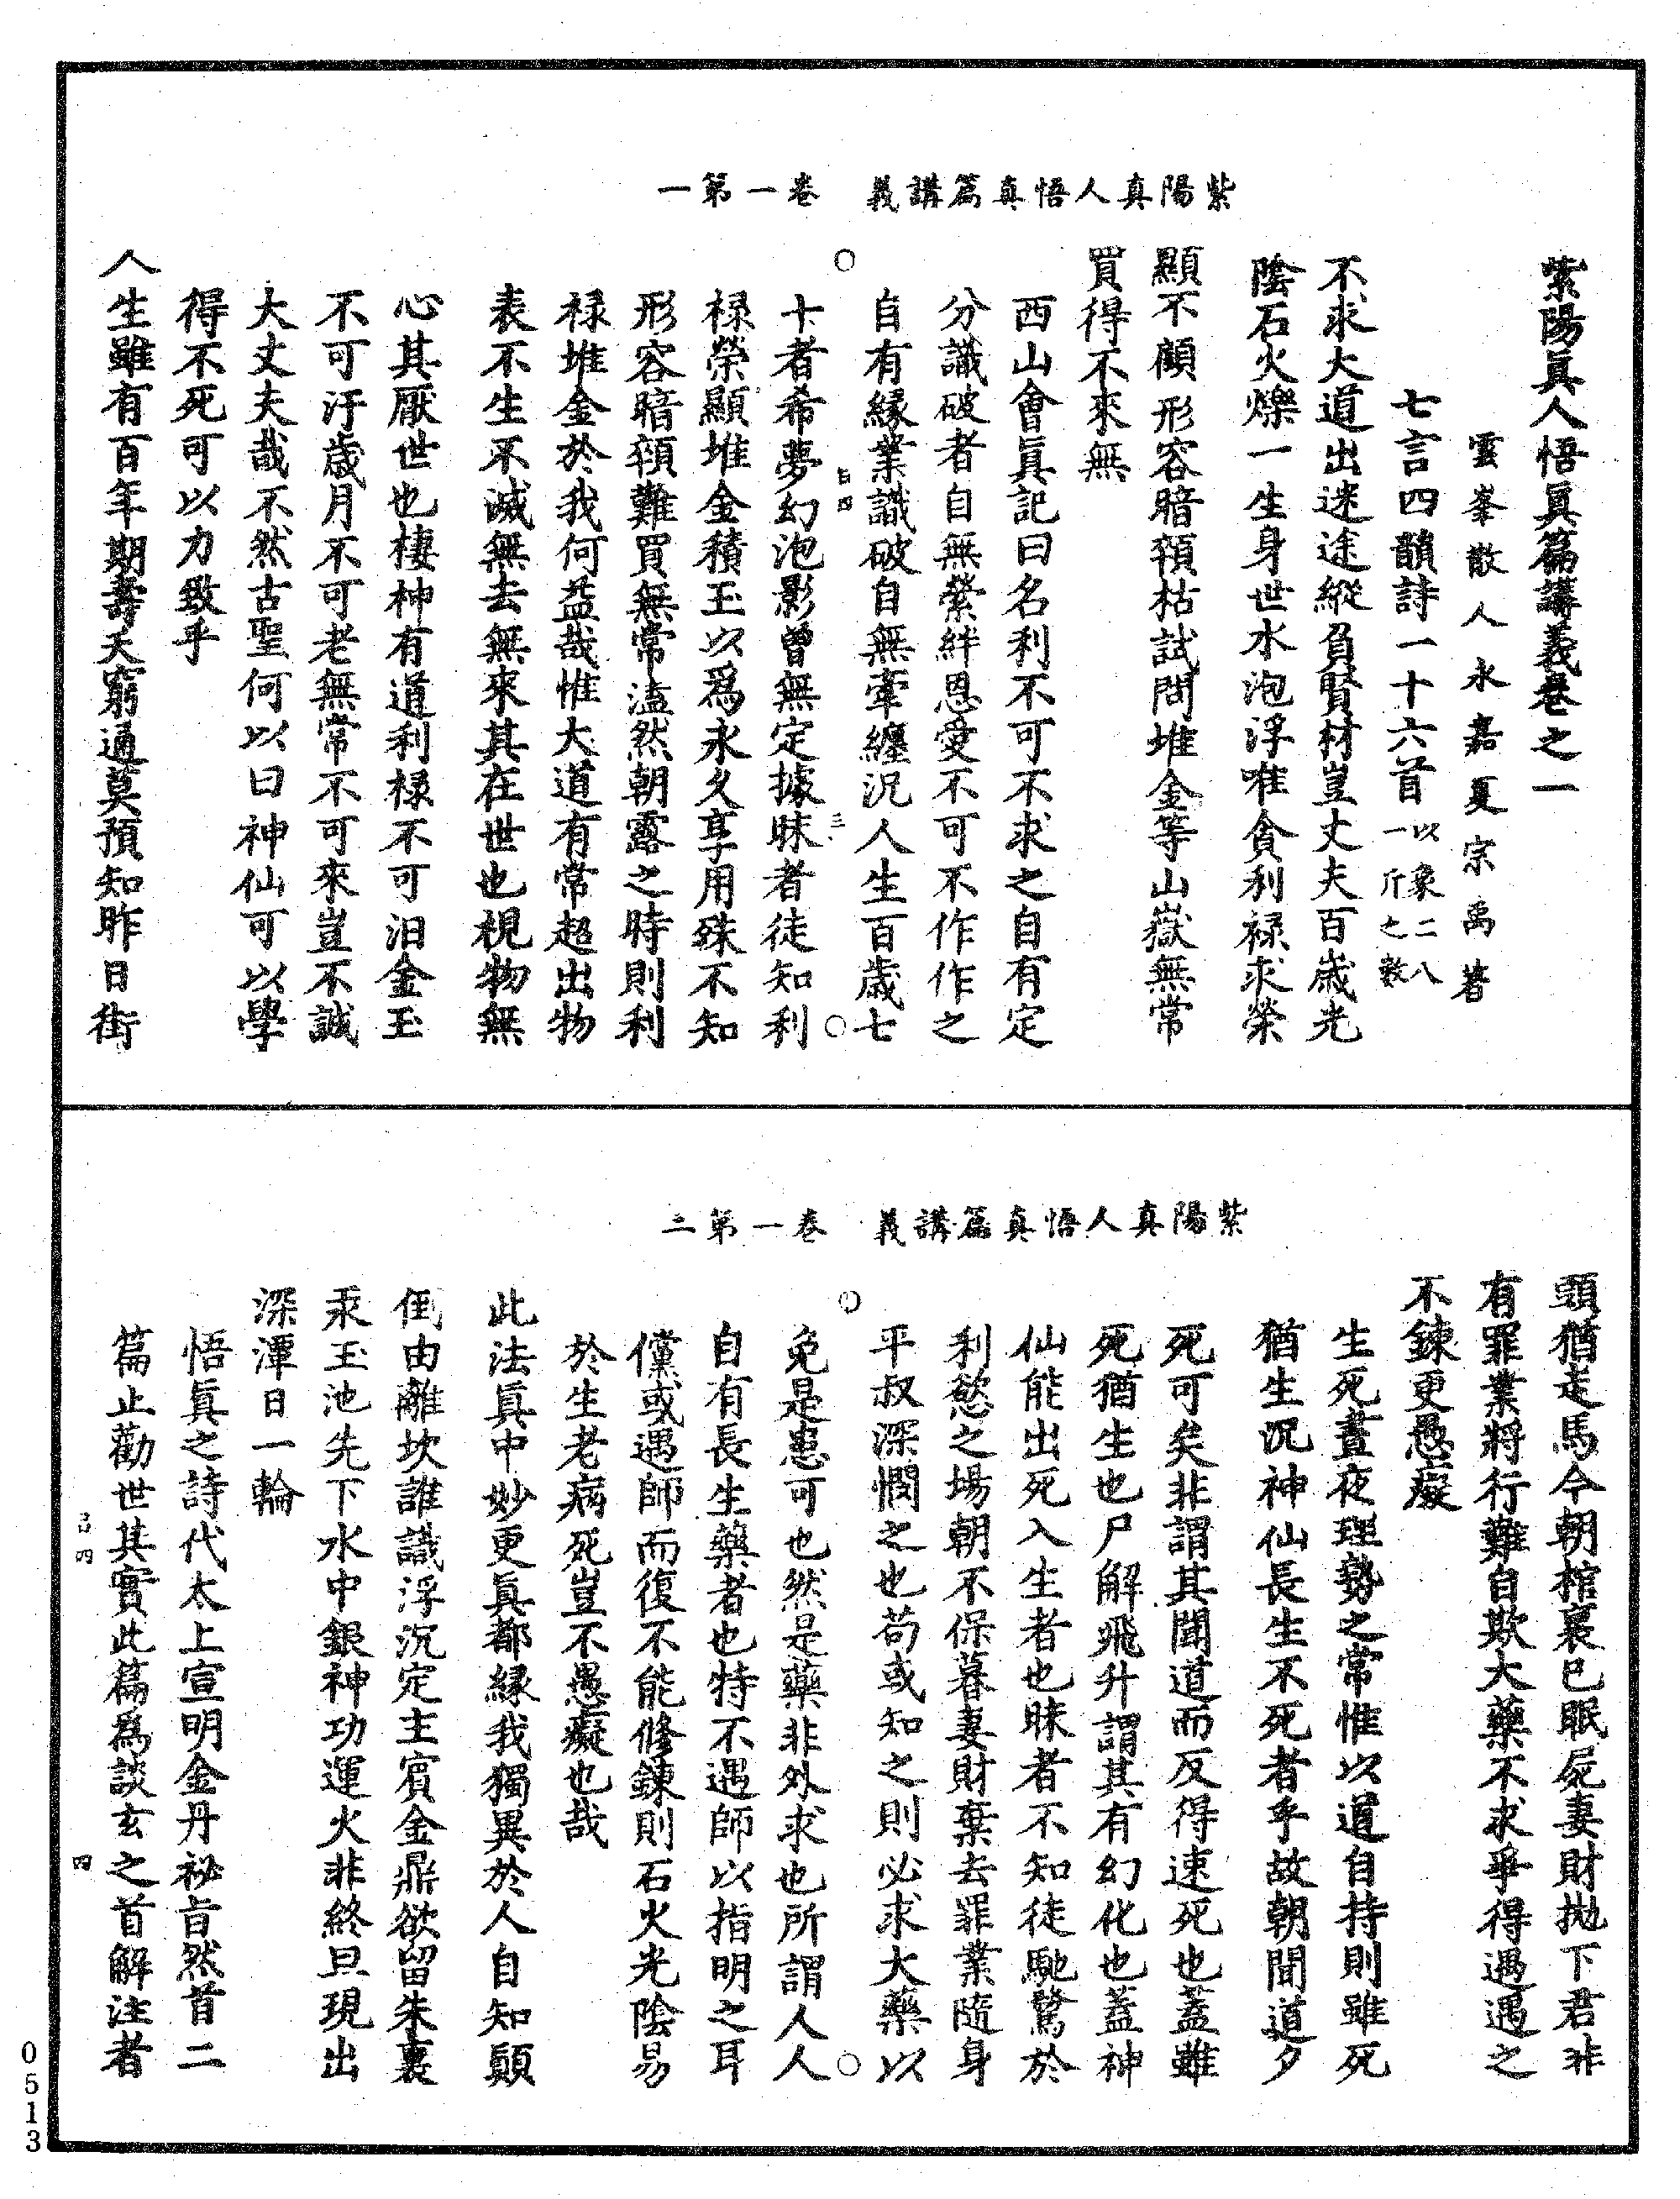 紫陽真人悟真篇講義　卷一第一
紫陽眞人悟眞篇講義卷之一
雲峯散人永嘉夏宗禹著
七言四韻詩一十六首以象二八一斤之數
不求大道出迷途縱負賢材豈丈夫百歲光
陰石火爍一生身世水泡浮唯貪利祿求榮
顯不顧形容暗頷枯試問堆金等山嶽無常
買得不來無
西山會眞記曰名利不可不求之自有定
分識破者自無縈絆恩愛不可不作作之
自有緣業識破自無牽纏況人生百歲七
十者希夢幻泡影曾無定據昧者徒知利
祿榮顯堆金積玉以爲永久享用殊不知
形容暗頷難買無常溘然朝露之時則利
祿堆金於我何益哉惟大道有常超出物
表不生不滅無去無來其在世也視物無
心其厭世也棲神有道利祿不可汨金玉
不可汙歲月不可老無常不可來豈不誠
大丈夫哉不然古聖何以曰神仙可以學
得不死可以力致乎
人生雖有百年期壽夭窮通莫預知昨日街
紫陽真人悟真篇講義　卷一第二
頭猶走馬今朝棺裏已眠屍妻財拋下君非
有罪業將行難自欺大藥不求爭得遇遇之
不鍊更愚癡
生死晝夜理勢之常惟以道自持則雖死
猶生況神仙長生不死者乎故朝聞道夕
死可矣非謂其聞道而反得速死也蓋雖
死猶生也尸解飛升謂其有幻化也蓋神
仙能出死入生者也昧者不知徒馳騖於
利慾之場朝不保暮妻財棄去罪業隨身
平叔深憫之也苟或知之則必求大藥以
免是患可也然是藥非外求也所謂人人
自有長生藥者也特不遇師以指明之耳
儻或遇師而復不能修鍊則石火光陰易
於生老病死豈不愚癡也哉
此法眞中妙更眞都緣我獨異於人自知顚
倒由離坎誰識浮沉定主賓金鼎欲留朱裏
汞玉池先下水中銀神功運火非終旦現出
深潭日一輪
悟眞之詩代太上宣明金丹祕旨然首二
篇止勸世其實此篇爲談玄之首解注者
四
0513